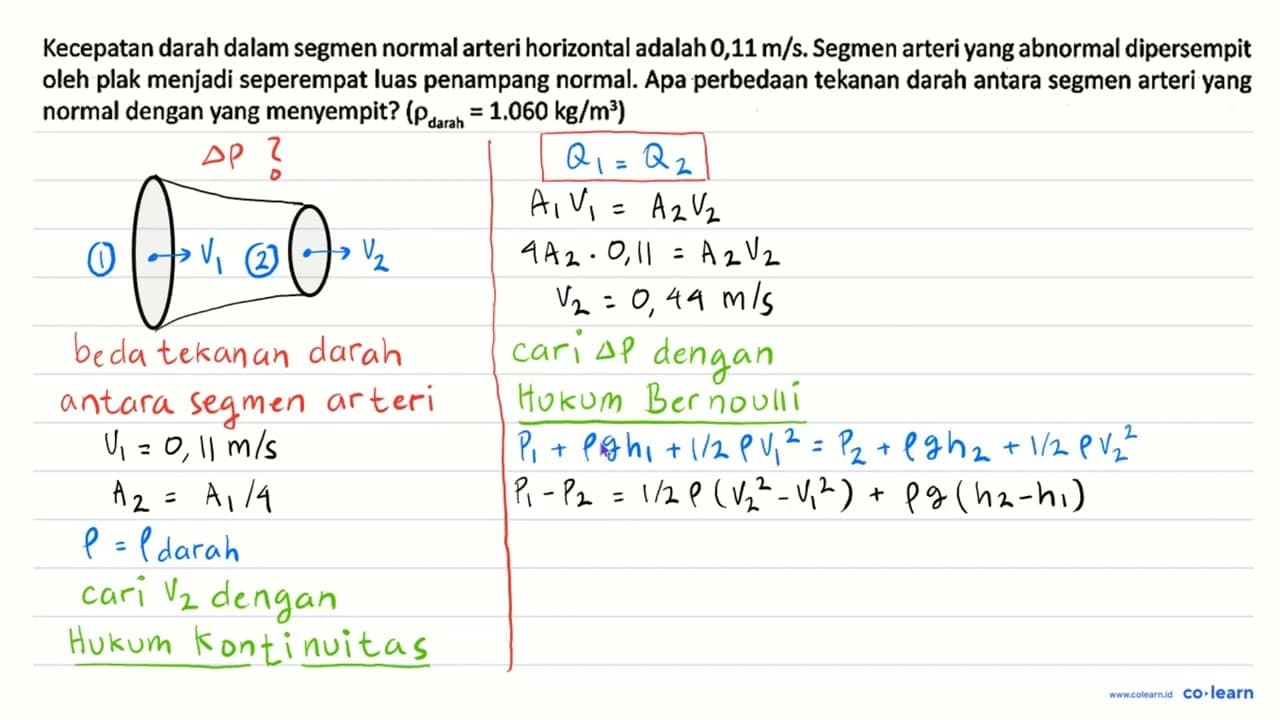 Kecepatan darah dalam segmen normal arteri horizontal adalah 0,11 m/s. Segmen arteri yang abnormal dipersempit
oleh plak menjadi seperempat luas penampang normal. Apa perbedaan tekanan darah antara segmen arteri yang
normal dengan yang menyempit? (ρdarah = 1.060 kg/m³)
ΔP ?
① V₁ ② V₂
beda tekanan darah
antara segmen arteri
V₁ = 0,11 m/s
A₂ = A₁/4
ρ = ρdarah
cari V₂ dengan
Hukum Kontinuitas
Q₁ = Q₂
A₁V₁ = A₂V₂
4A₂ · 0,11 = A₂V₂
V₂ = 0,44 m/s
cari ΔP dengan
Hukum Bernoulli
P₁ + ρgh₁ + 1/2 ρV₁² = P₂ + ρgh₂ + 1/2 ρV₂²
P₁ - P₂ = 1/2 ρ (V₂² - V₁²) + ρg (h₂ - h₁)
www.colearn.id co·learn